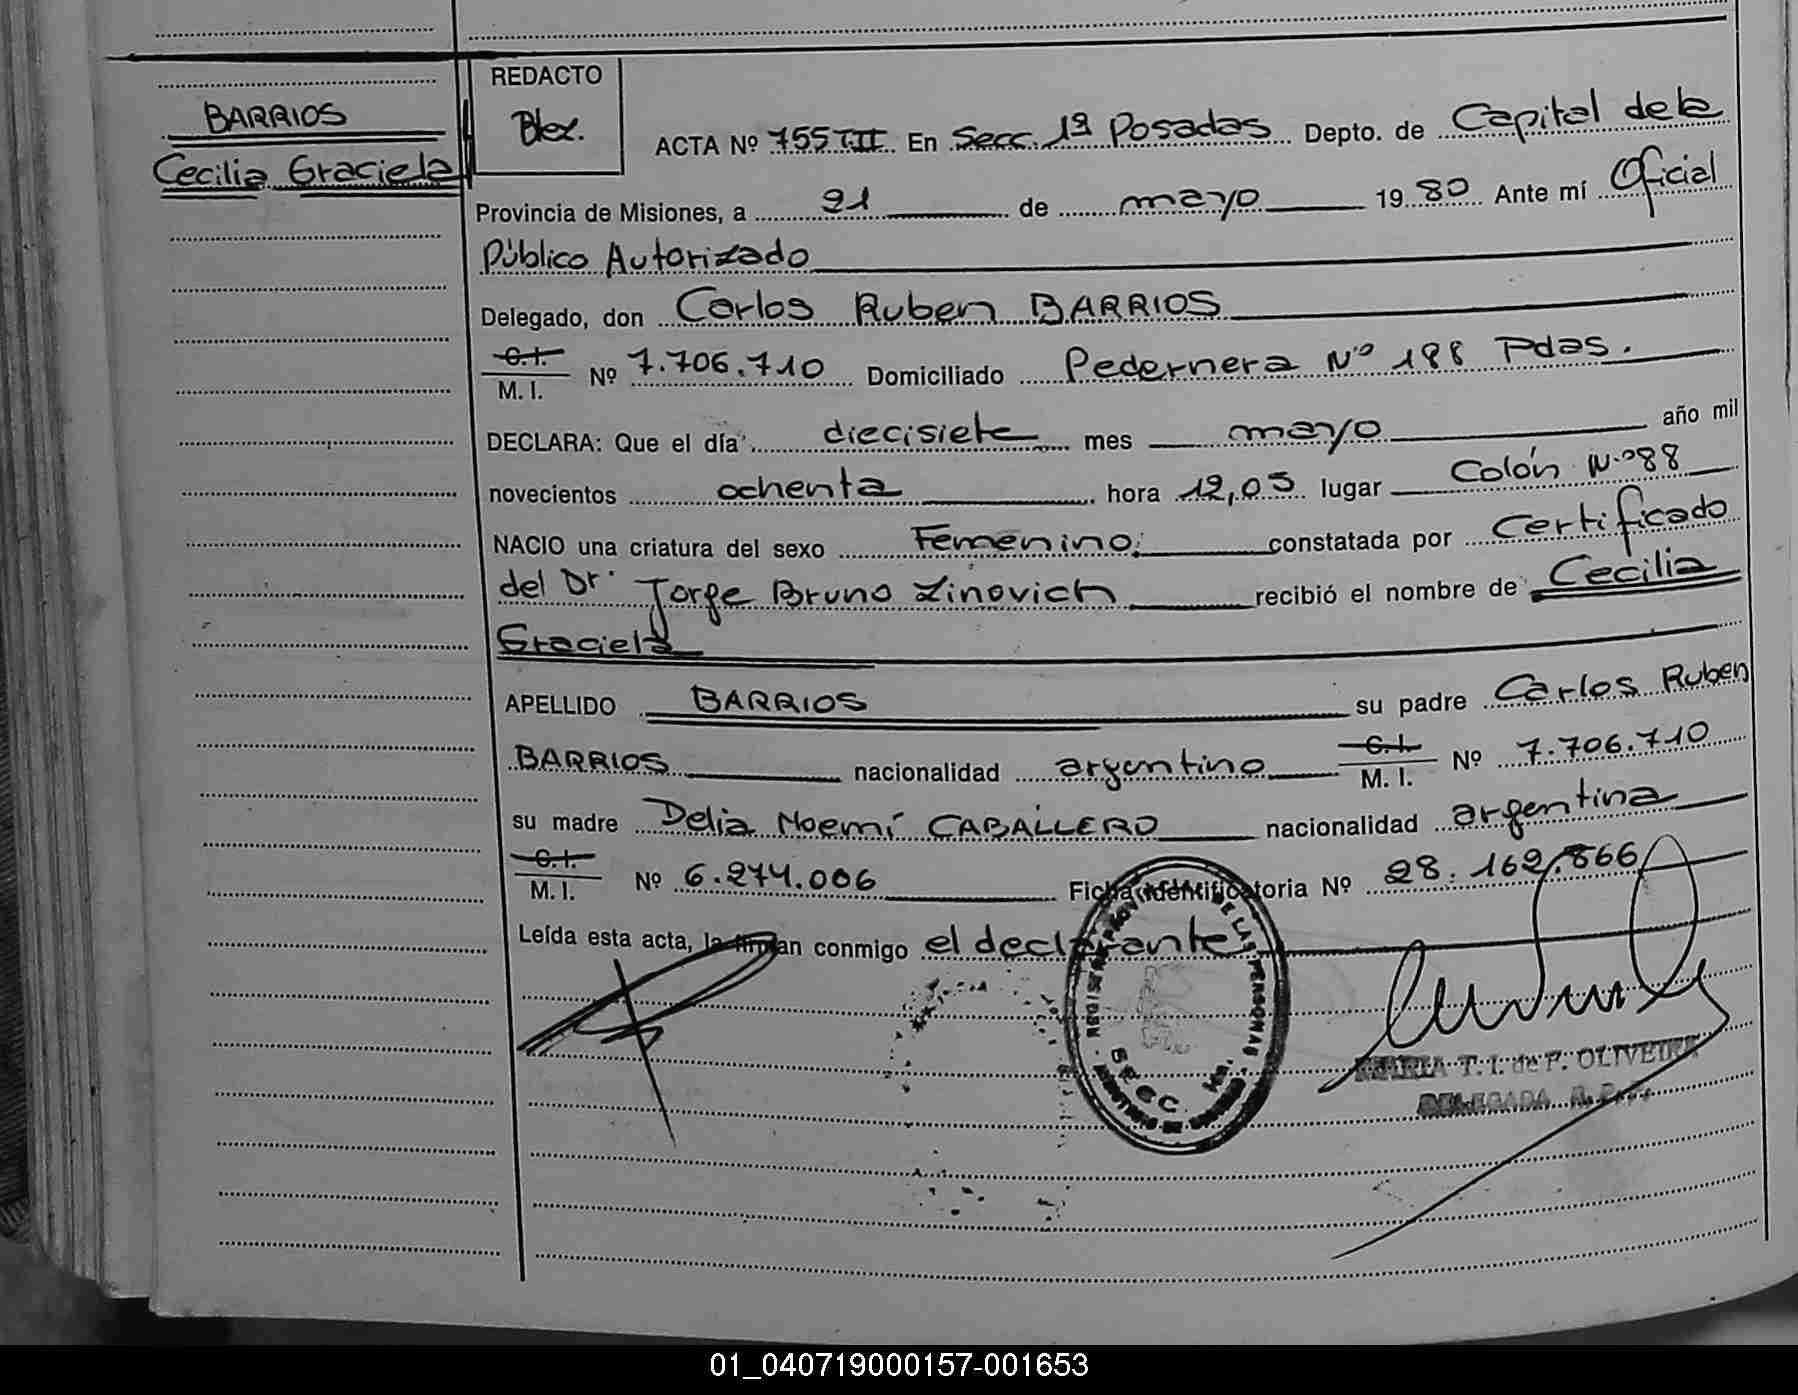 BARRIOS
Cecilia Graciela
REDACTO
ACTA Nº 755 TII En Secc. 1ª Posadas Depto. de Capital de la
Provincia de Misiones, a 21 de mayo 1980 Ante mí Oficial
Público Autorizado
Delegado, don Carlos Ruben BARRIOS
C.I.
M. I. Nº 7.706.710 Domiciliado Pedernera Nº 188 Pdas.
DECLARA: Que el día diecisiete mes mayo año mil
novecientos ochenta hora 12,05 lugar Colón N.º 88
NACIO una criatura del sexo Femenino: constatada por Certificado
del Dr. Jorge Bruno Zinovich recibió el nombre de Cecilia
Graciela
APELLIDO BARRIOS su padre Carlos Ruben
BARRIOS nacionalidad argentino C.I. M. I. Nº 7.706.710
su madre Delia Noemí CABALLERO nacionalidad argentina
C.I.
M. I. Nº 6.274.006 Ficha identificatoria Nº 28.162.866
Leída esta acta, la firman conmigo el declarante
DE LAS PERSONAS
SECC.
MARIA T. I. de P. OLIVEIRA
DELEGADA
01_040719000157-001653